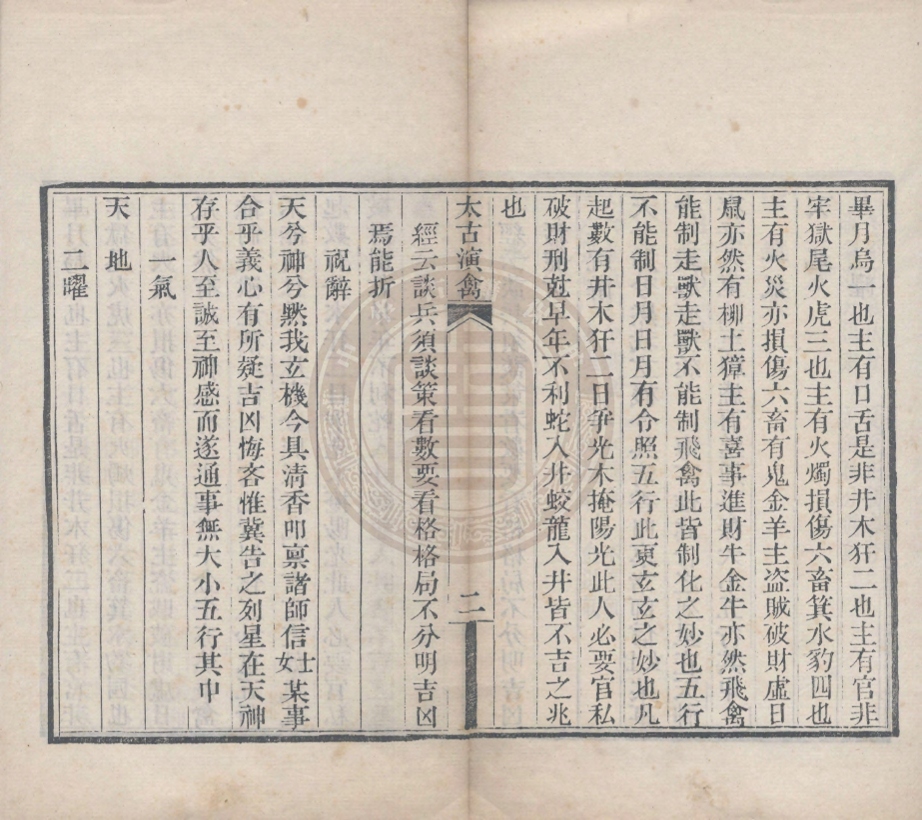 畢月烏一也主有口舌是非井木犴二也主有官非
牢獄尾火虎三也主有火燭損傷六畜箕水豹四也
主有火災亦損傷六畜有鬼金羊主盗賊破財虛日
鼠亦然有柳土獐主有喜事進財牛金牛亦然飛禽
能制走獸走獸不能制飛禽此皆制化之妙也五行
不能制日月日月有令照五行此更玄玄之妙也凡
起數有井木犴二日爭光木掩陽光此人必要官私
破財刑尅早年不利蛇入井蛟龍入井皆不吉之兆
也
太古演禽 二
經云談兵須談策看數要看格格局不分明吉凶
焉能折
祝辭
天兮神兮黙我玄機今具清香叩禀諸師信士女某事
合乎義心有所疑吉凶悔吝惟冀告之列星在天神
存乎人至誠至神感而遂通事無大小五行其中
一氣
天地
二曜